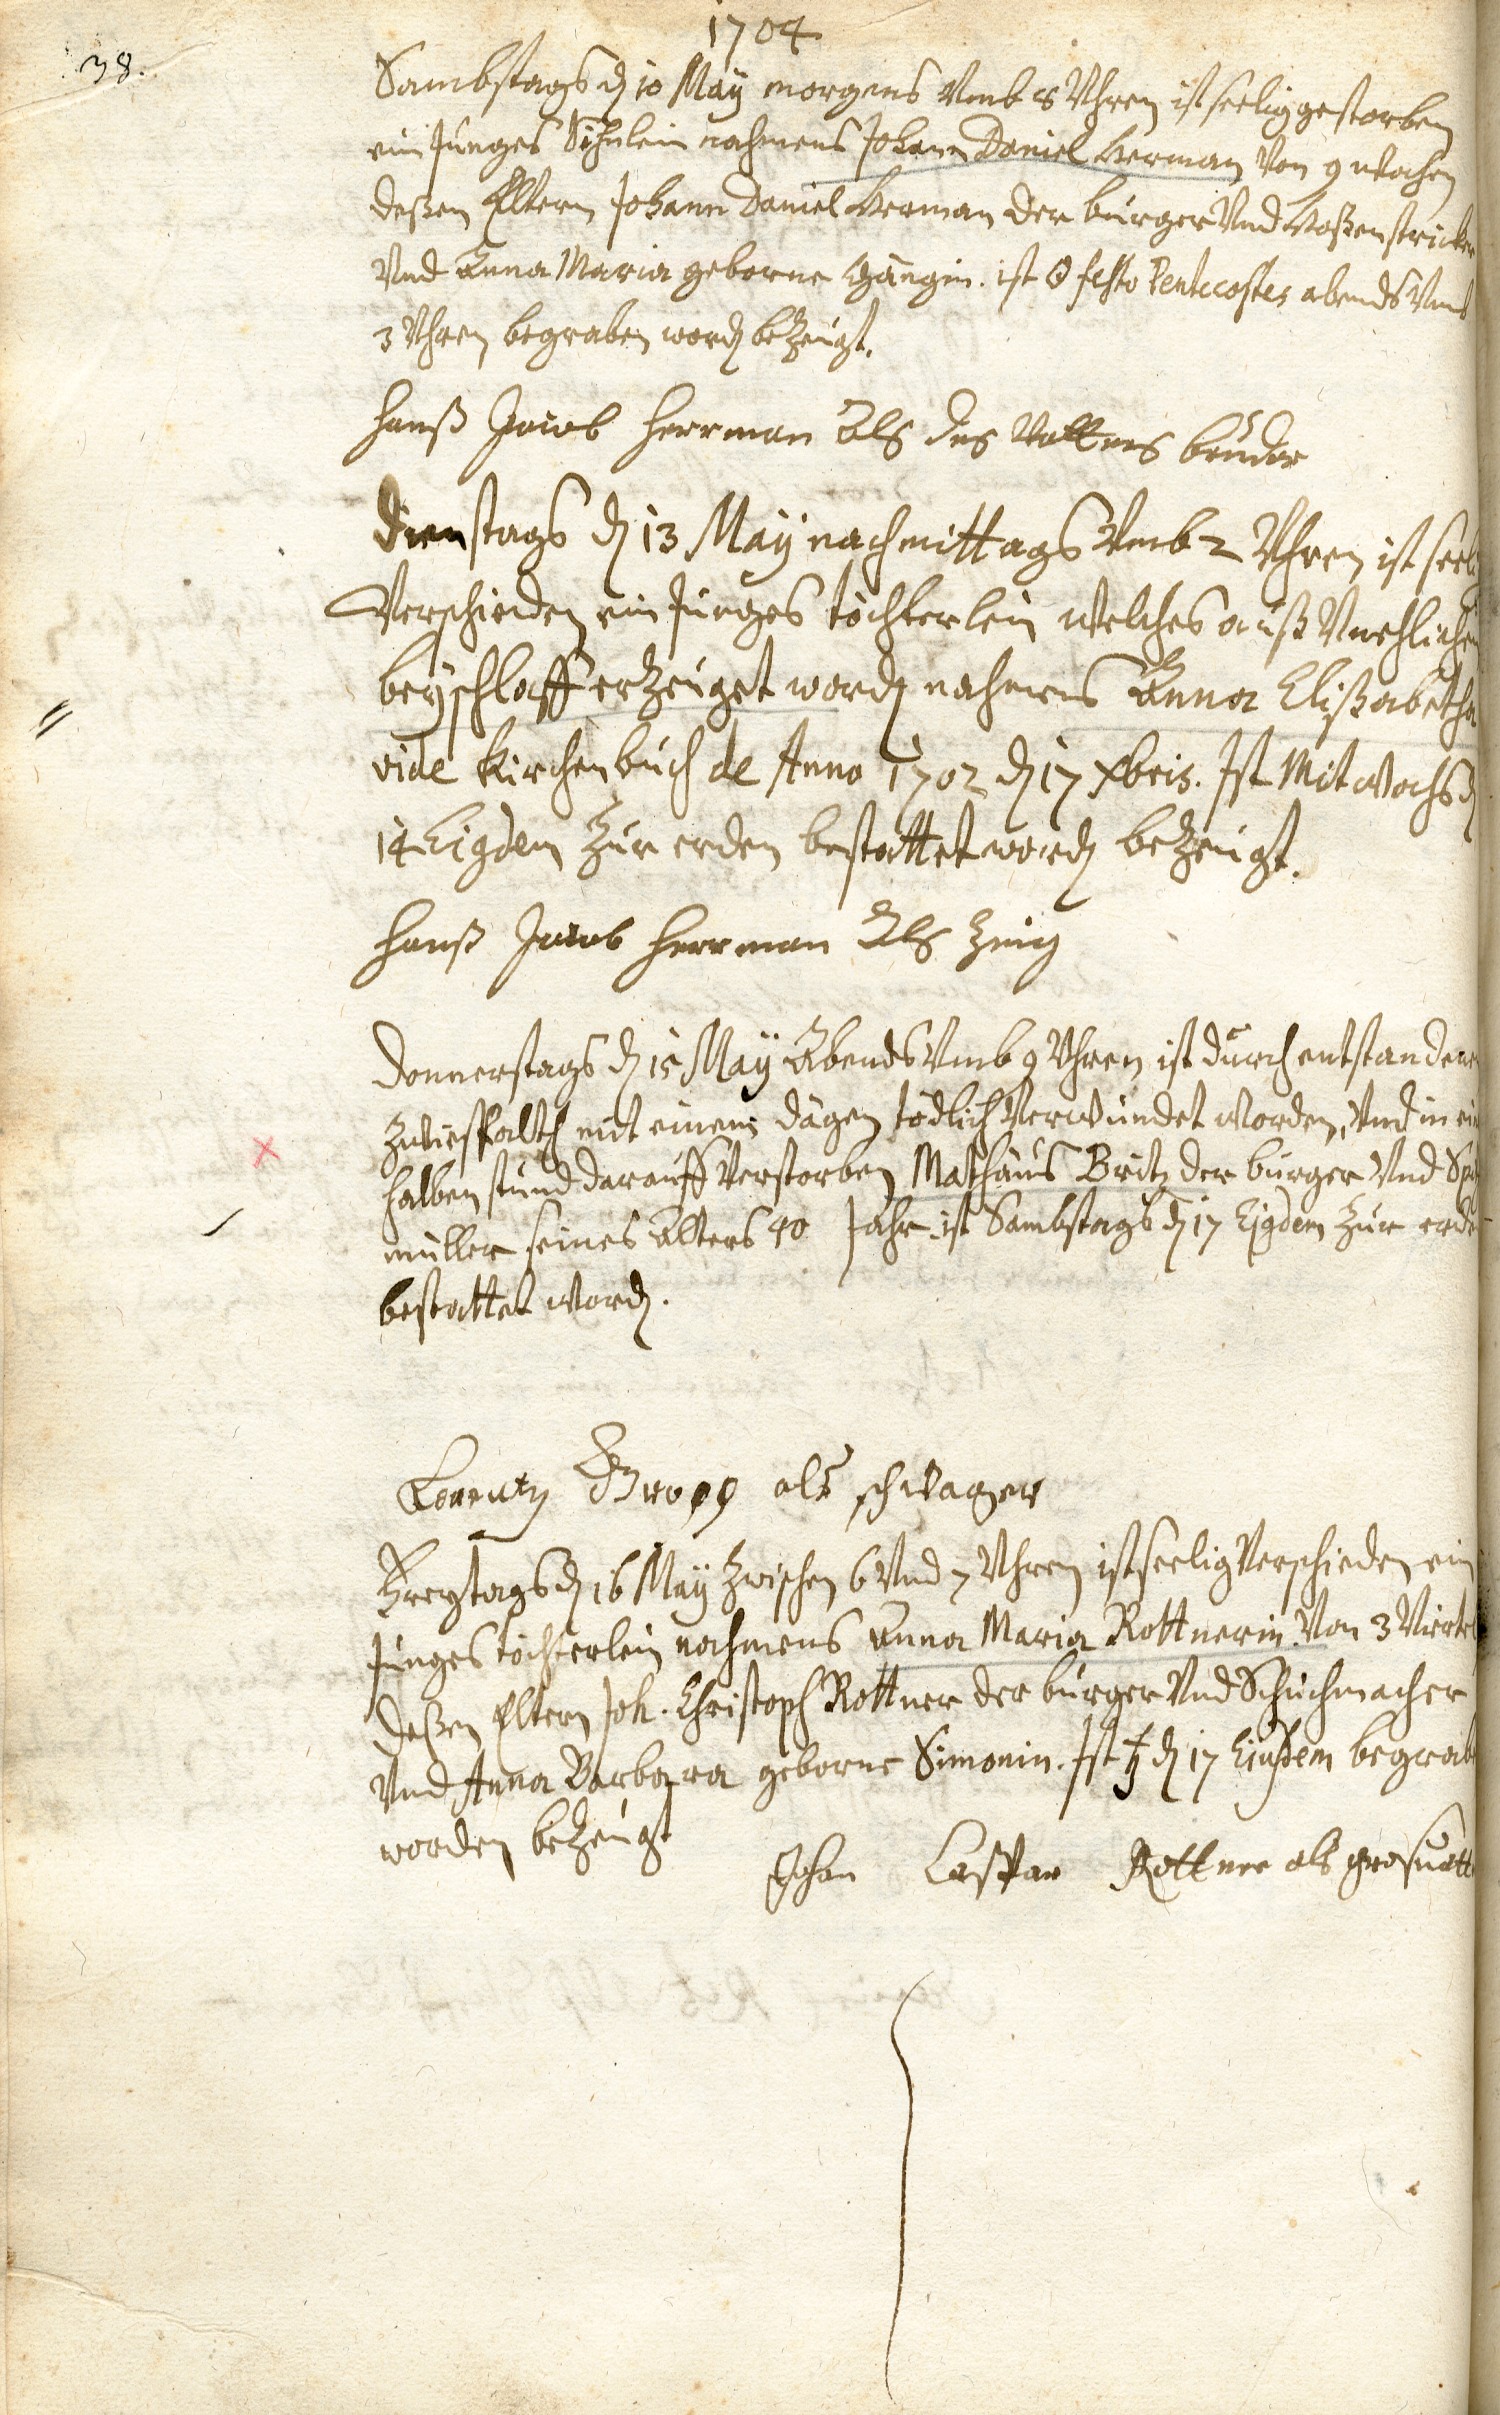 1704
38.
Sambstags d 10 May morgens Vmb 8 Vhren ist seelig gestorben
ein Junges Söhnlein nahmens Johann Daniel Herman Von 9 wochen
deßen Eltern Johann Daniel Herman der burger Vnd Hoßenstricker
Vnd Anna Maria geborne ist festo Pentecostes abends Vmb
3 Vhren begraben word bezeugt.
Hanß Jacob Herrman Als des Vatters bruder
Dienstags d 13 May nachmittags Vmb 2 Vhren ist seel
Verschieden ein Junges töchterlein welches auß Vnehlichen
beyschlaff erzeuget word nahmens Anna Elißabetha
vide Kirchenbuch de Anno 1702 d 17 Xbris. Ist Mitwochs d
14 Eigdem zur erden bestattet word bezeugt.
Hanß Jacob Herrman Als Zeug
Donnerstags d 15 May Abends Vmb 9 Vhren ist durch entstandene
Zwiespalt mit einem dägen tödlich Verwundet worden, Vnd in ein
halben stund darauff Verstorben Mathäus Britz der burger Vnd
müller seines alters 40 Jahr ist Sambstags d 17 Eigdem zur erde
bestattet word.
Lorentz als schwager
Freytags d 16 May zwischen 6 Vnd 7 Vhren ist seelig Verschieden ein
Junges töchterlein nahmens Anna Maria Rottnerin Von 3 Viertel
deßen Eltern Joh. Christoph Rottner der burger Vnd Schuchmacher
Vnd Anna Barbara geborne Simonin. Ist ♄ d 17 begrab
worden bezeugt
Johan Casper Rottner als grosuatt